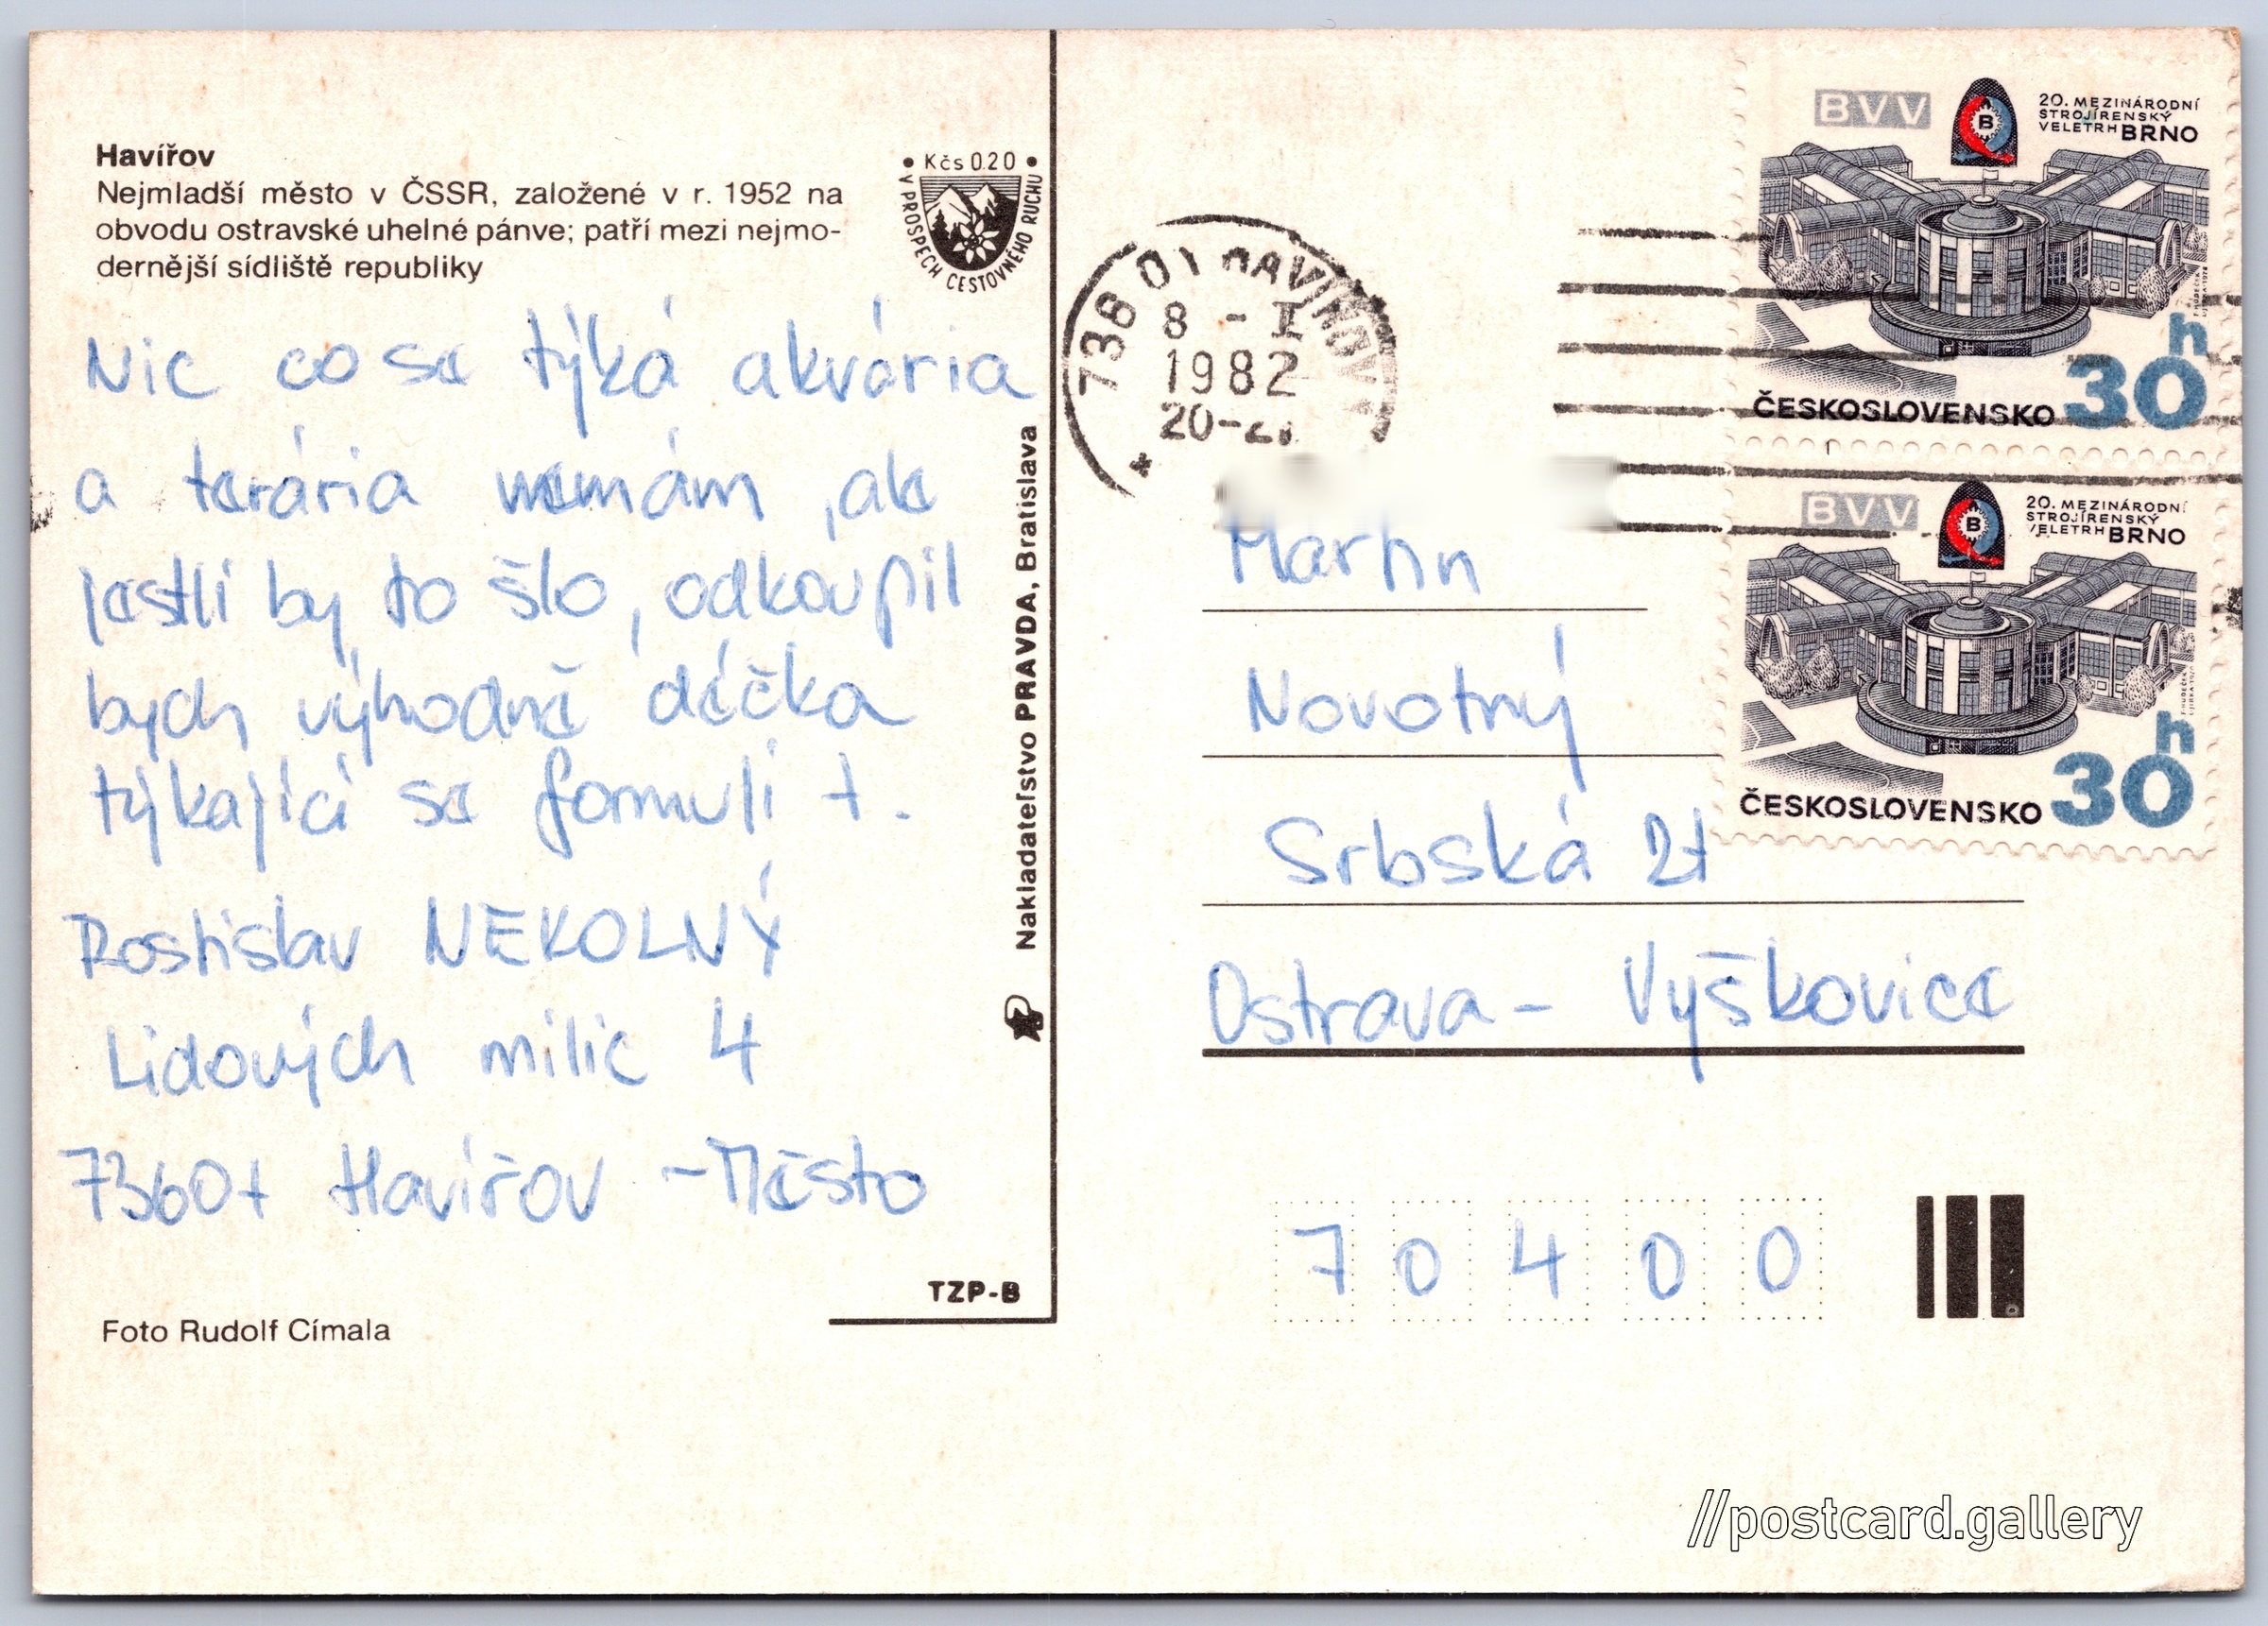 Havířov
Nejmladší město v ČSSR, založené v r. 1952 na
obvodu ostravské uhelné pánve; patří mezi nejmo-
dernější sídliště republiky
• Kčs 0.20 •
V PROSPĚCH CESTOVNÉHO RUCHU
Nic co se týká akvária
a terária nemám, ale
jestli by to šlo, odkoupil
bych výhodně déčka
týkající se formulí 1.
Rostislav NEKOLNÝ
Lidových milic 4
73601 Havířov - Město
TZP-B
Foto Rudolf Címala
Nakladateľstvo PRAVDA, Bratislava
738 01
8 - I
1982
20-21
BVV
B
20. MEZINÁRODNÍ
STROJÍRENSKÝ
VELETRH BRNO
30h
ČESKOSLOVENSKO
BVV
B
20. MEZINÁRODNÍ
STROJÍRENSKÝ
VELETRH BRNO
30h
ČESKOSLOVENSKO
Martin
Novotný
Srbská 21
Ostrava - Vyškovice
70400
//postcard.gallery